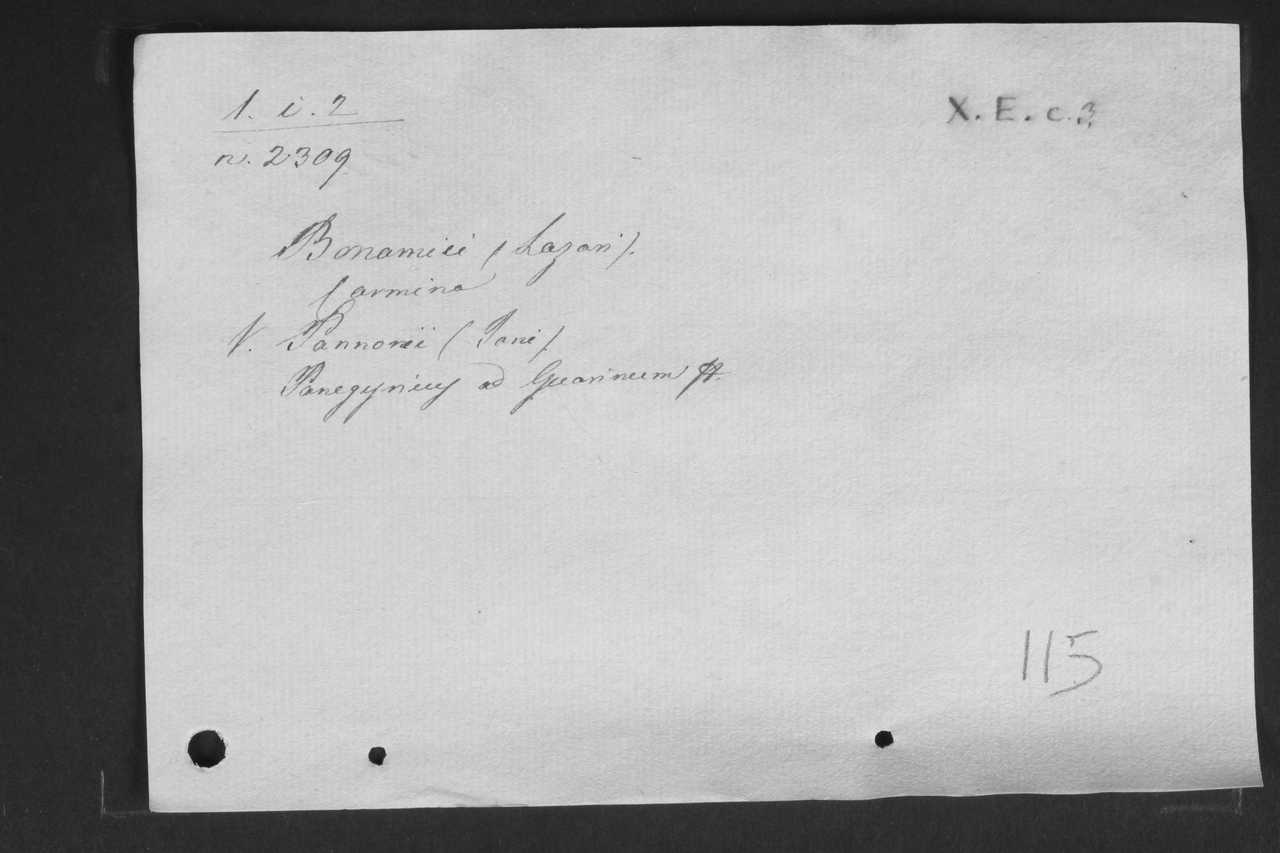 1. i. 2
X. E. c. 3.
n. 2309
Bonamici (Lazari).
Carmina
V. Pannonii (Jani).
Panegyricus ad Guarinum
115